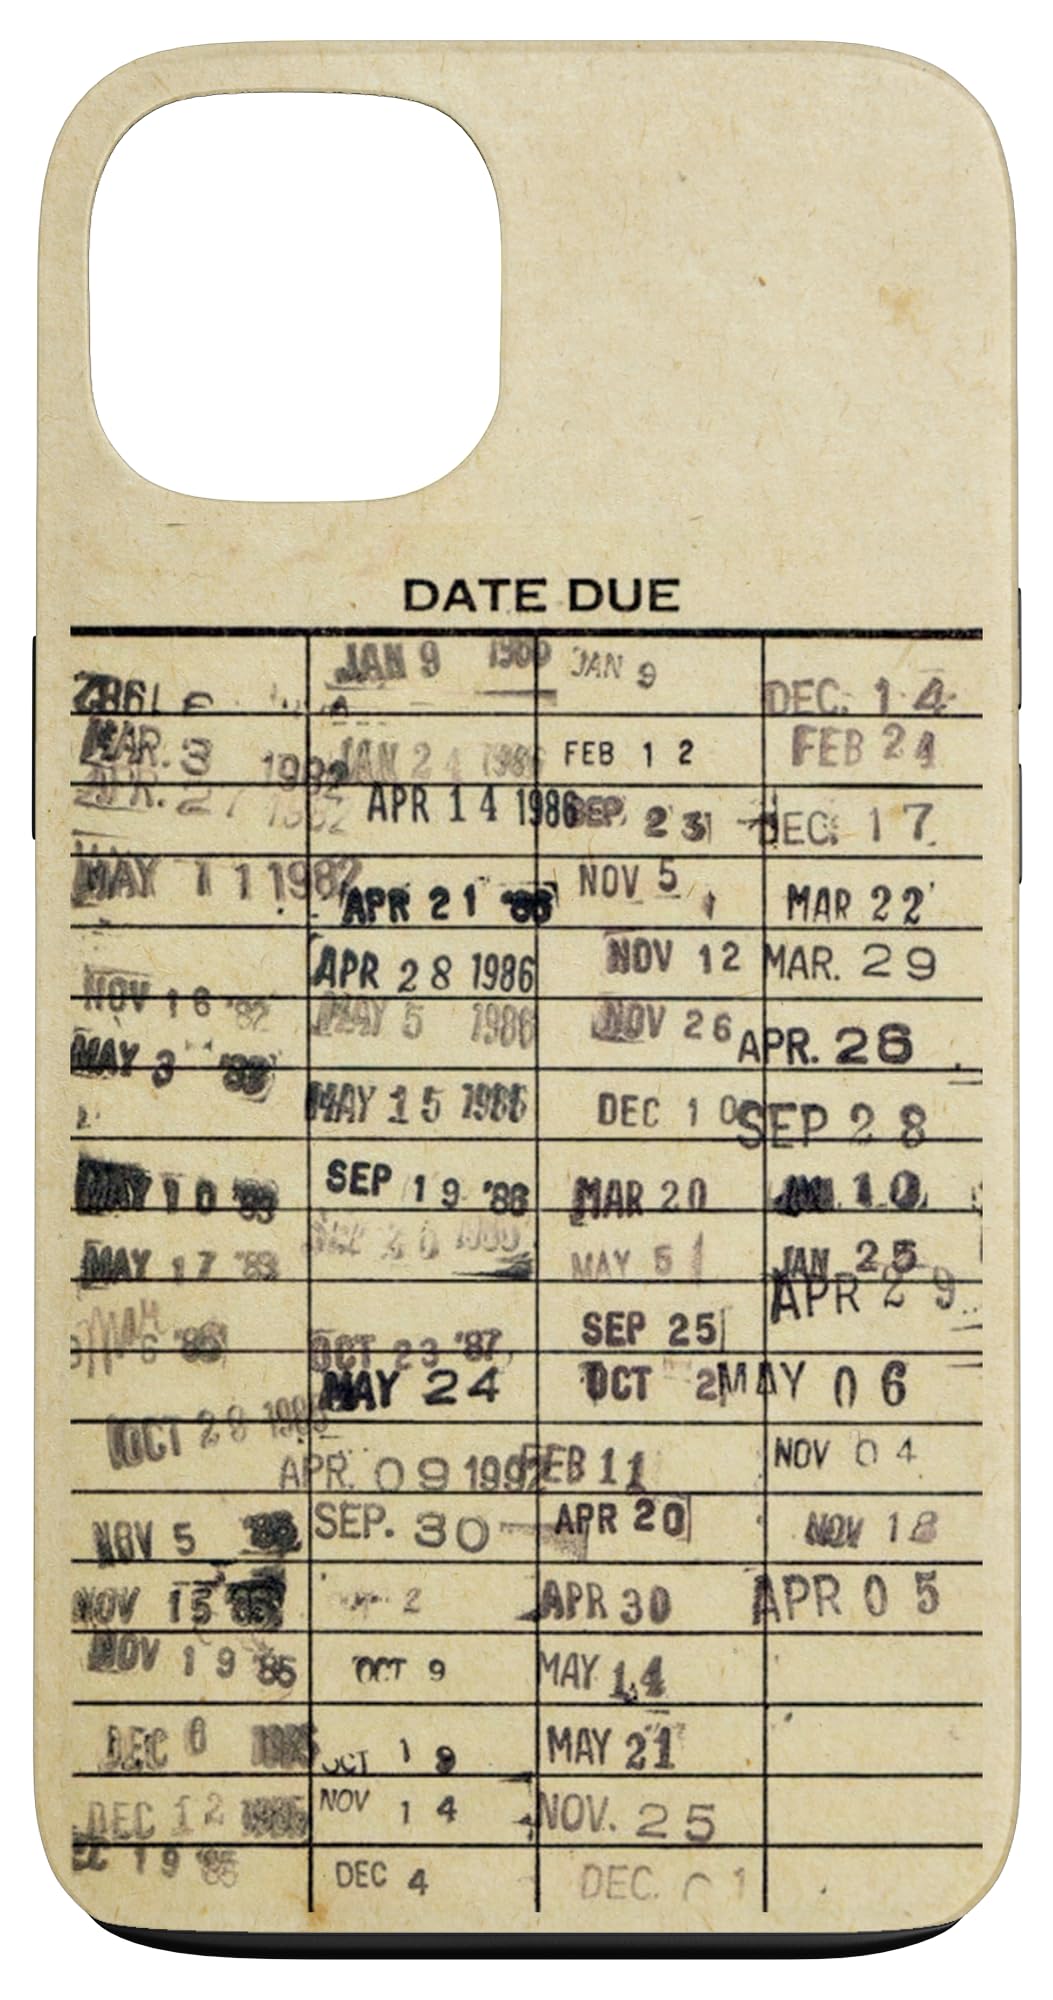 DATE DUE
MAR. 3 1982
APR. 27 1982
MAY 11 1982
NOV 16 '82
MAY 3 '83
MAY 10 '83
MAY 17 '83
OCT 28
NOV 5
NOV 15 '85
NOV 19 '85
DEC 6 1985
DEC 12 1985
19 '85
JAN 9 1986
JAN 24 1986
APR 14 1986
APR 21 '86
APR 28 1986
MAY 5 1986
MAY 15 1986
SEP 19 '86
OCT 23 '87
MAY 24
APR. 09 1992
SEP. 30
2
OCT 9
OCT 19
NOV 14
DEC 4
JAN 9
FEB 12
SEP 23
NOV 5
NOV 12
NOV 26
DEC 10
MAR 20
MAY 5
SEP 25
OCT 2
FEB 11
APR 20
APR 30
MAY 14
MAY 21
NOV. 25
DEC. 01
DEC. 14
FEB 24
DEC. 17
MAR 22
MAR. 29
APR. 26
SEP 28
10
JAN 25
APR 29
MAY 06
NOV 04
NOV 18
APR 05